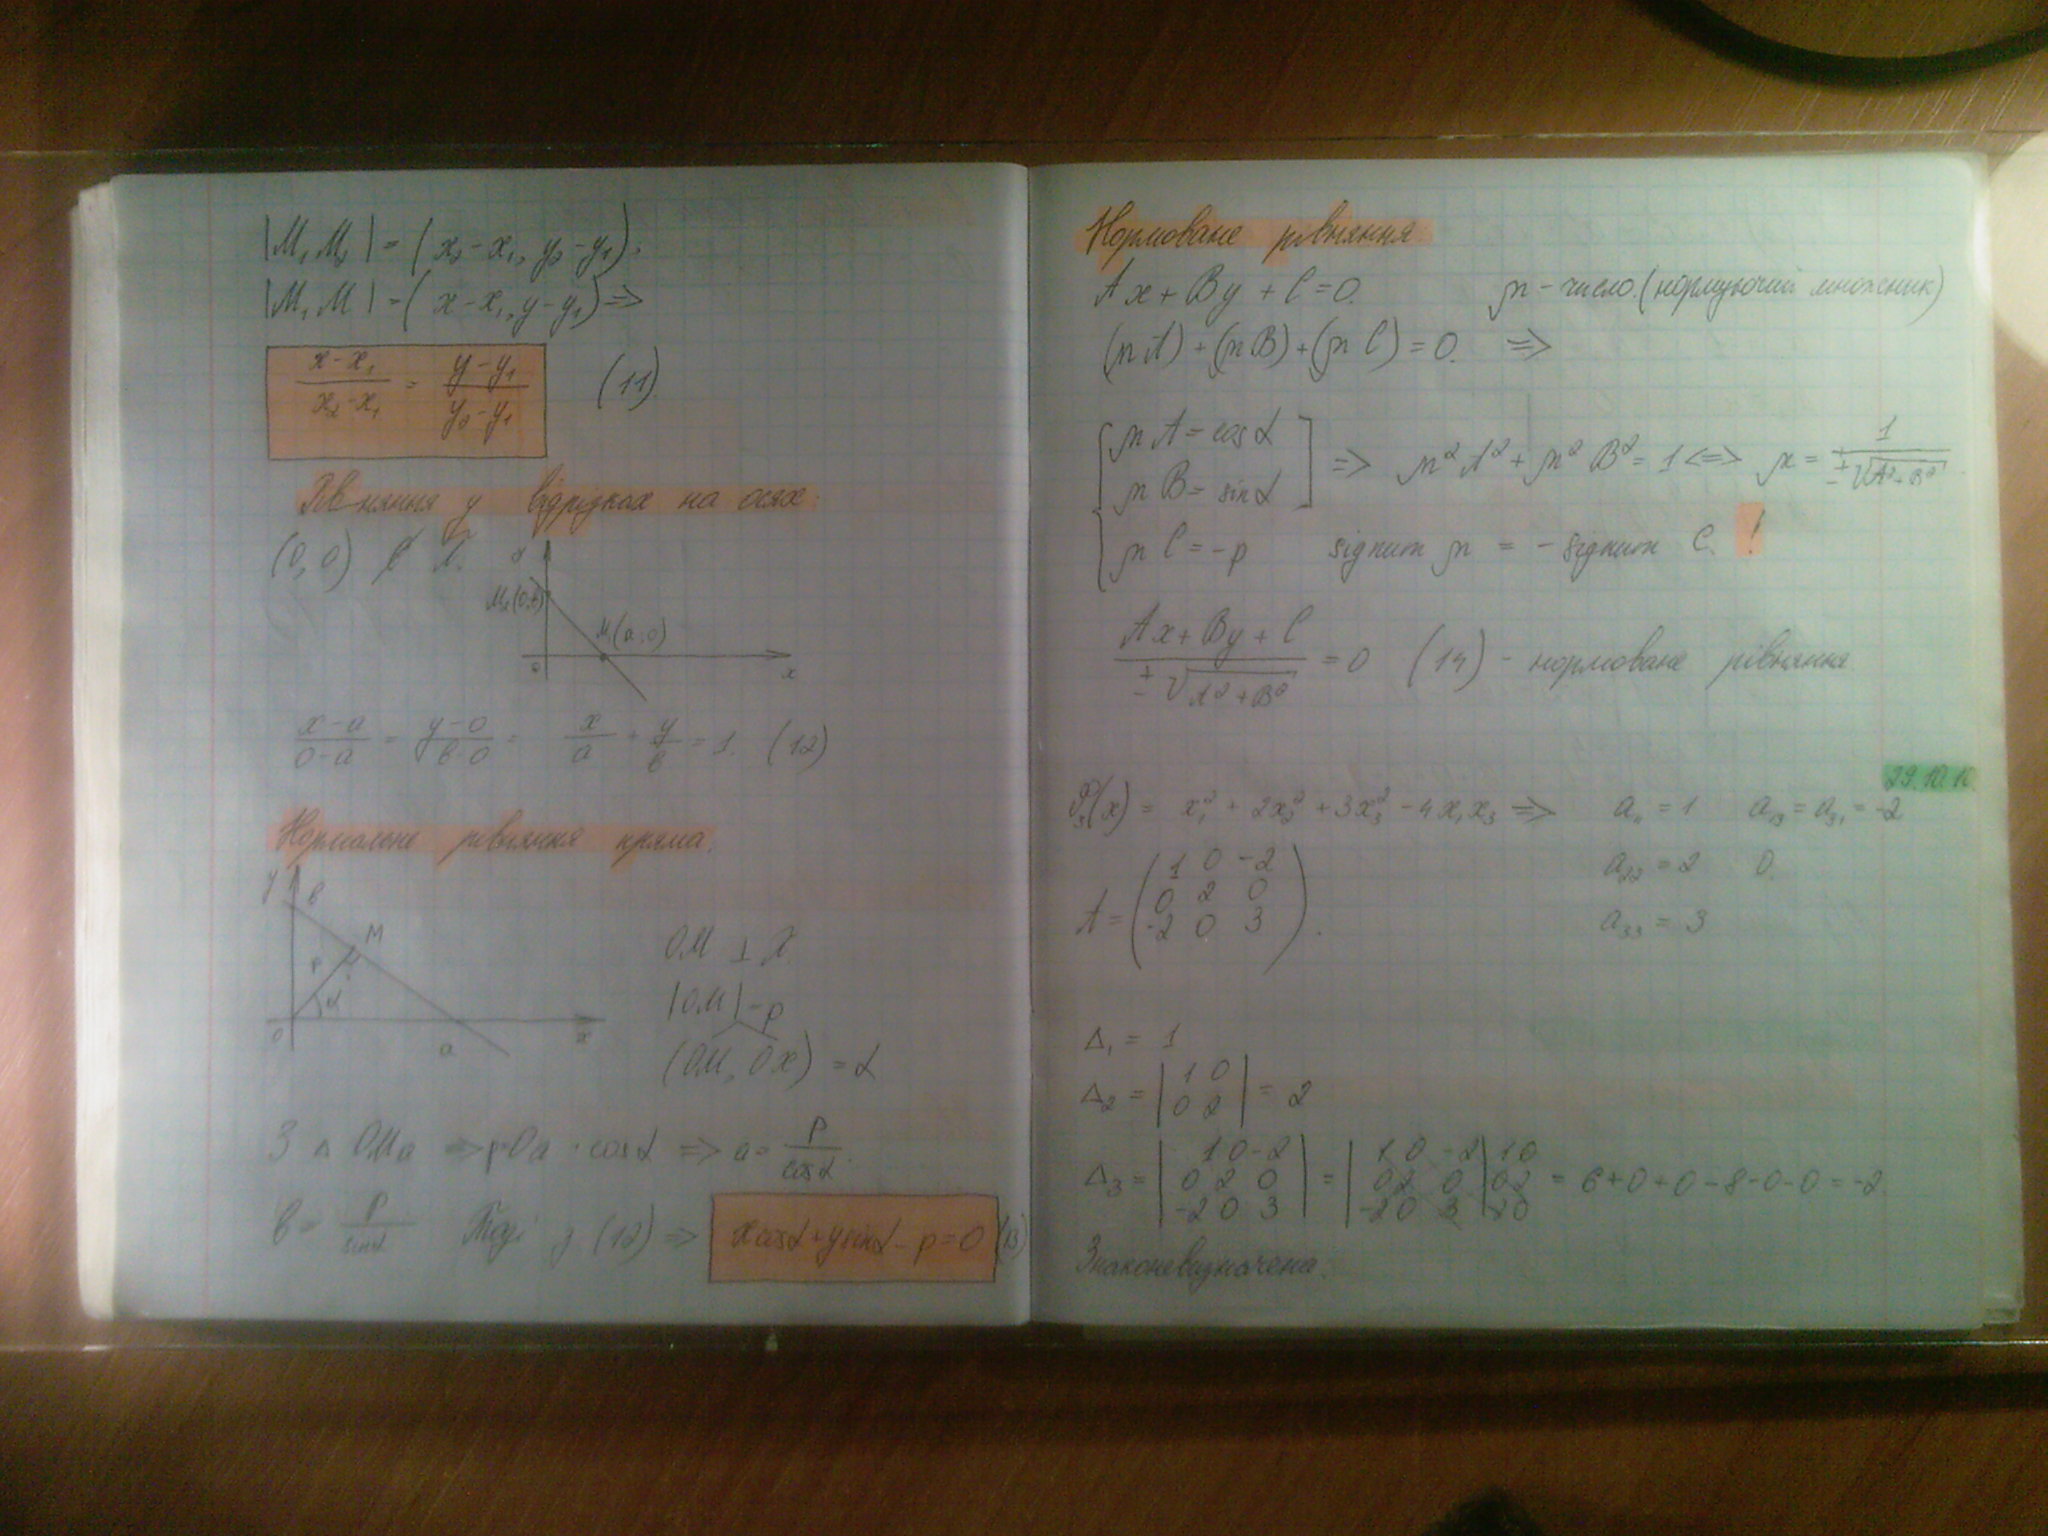 |M₁M₂| = (x₂-x₁, y₂-y₁);
|M₁M| = (x-x₁, y-y₁) =>
(x-x₁)/(x₂-x₁) = (y-y₁)/(y₂-y₁) (11)
Рівняння у відрізках на осях.
(0,0) ∉ L.
M₂(0,в)
M₁(a,0)
0 x
(x-a)/(0-a) = (y-0)/(в-0) = x/a + y/в = 1. (12)
Нормальне рівняння пряма.
y в
M
p
α
0 a x
OM ⊥ L
|OM| = p
(OM, Ox) = α
З △ OMa => p=Oa · cosα => a = p/cosα.
в = p/sinα Тоді з (12) => x cosα + y sinα - p = 0 (13)
Нормоване рівняння
Ax + By + C = 0. μ - число. (нормуючий множник)
(μA) + (μB) + (μC) = 0. =>
μA = cosα
μB = sinα => μ²A² + μ²B² = 1 <=> μ = 1/±√(A²+B²)
μC = -p signum μ = - signum C. !
(Ax + By + C)/(±√(A²+B²)) = 0 (14) - нормоване рівняння
29.10.10
φ₃(x) = x₁² + 2x₂² + 3x₃² - 4x₁x₃ => a₁₁ = 1 a₁₃ = a₃₁ = -2
a₂₂ = 2 0.
a₃₃ = 3
A = (1 0 -2
0 2 0
-2 0 3).
Δ₁ = 1
Δ₂ = |1 0
0 2| = 2
Δ₃ = |1 0 -2
0 2 0
-2 0 3| = |1 0 -2
0 2 0
-2 0 3| 1 0
0 2
-2 0 = 6+0+0-8-0-0 = -2.
Знаконевизначена.